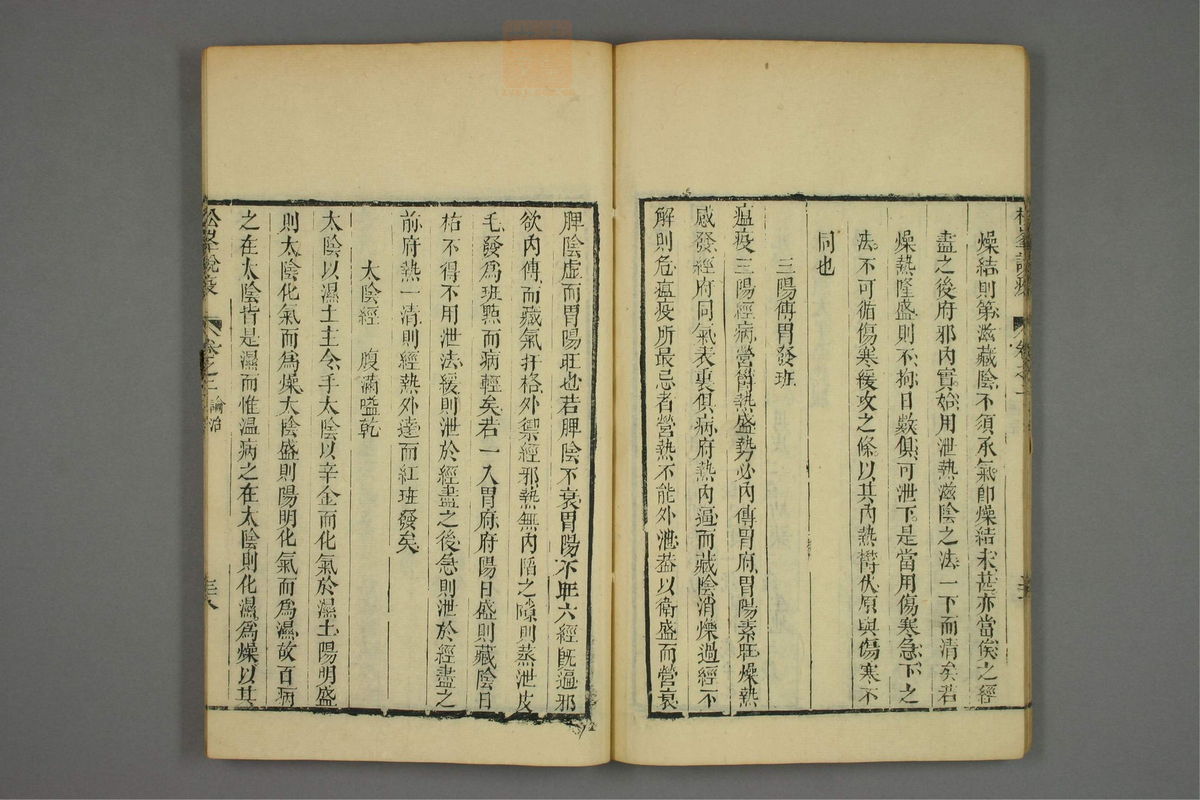 燥結則第滋藏陰不須承氣卽燥結未甚亦當俟之經
盡之後府邪內實始用泄熱滋陰之法一下而清矣若
燥熱隆盛則不拘日數俱可泄下是當用傷寒急下之
法不可循傷寒緩攻之條以其內熱欝伏原與傷寒不
同也
三陽傳胃發班
瘟疫三陽經病營欝熱盛勢必內傳胃府胃陽素旺燥熱
感發經府同氣表裏俱病府熱內逼而藏陰消爍過經不
解則危瘟疫所最忌者營熱不能外泄葢以衛盛而營衰
脾陰虛而胃陽旺也若脾陰不衰胃陽不旺六經旣遍邪
欲內傳而藏氣扞格外禦經邪熱無內陷之隙則蒸泄皮
毛發爲班㸃而病輕矣若一入胃府府陽日盛則藏陰日
枯不得不用泄法緩則泄於經盡之後急則泄於經盡之
前府熱一清則經熱外達而紅班發矣
太陰經 腹滿嗌乾
太陰以濕土主令手太陰以辛金而化氣於濕土陽明盛
則太陰化氣而爲燥太陰盛則陽明化氣而爲濕故百病
之在太陰皆是濕而惟温病之在太陰則化濕爲燥以其
松峯說疫 卷之二 論治 三十八